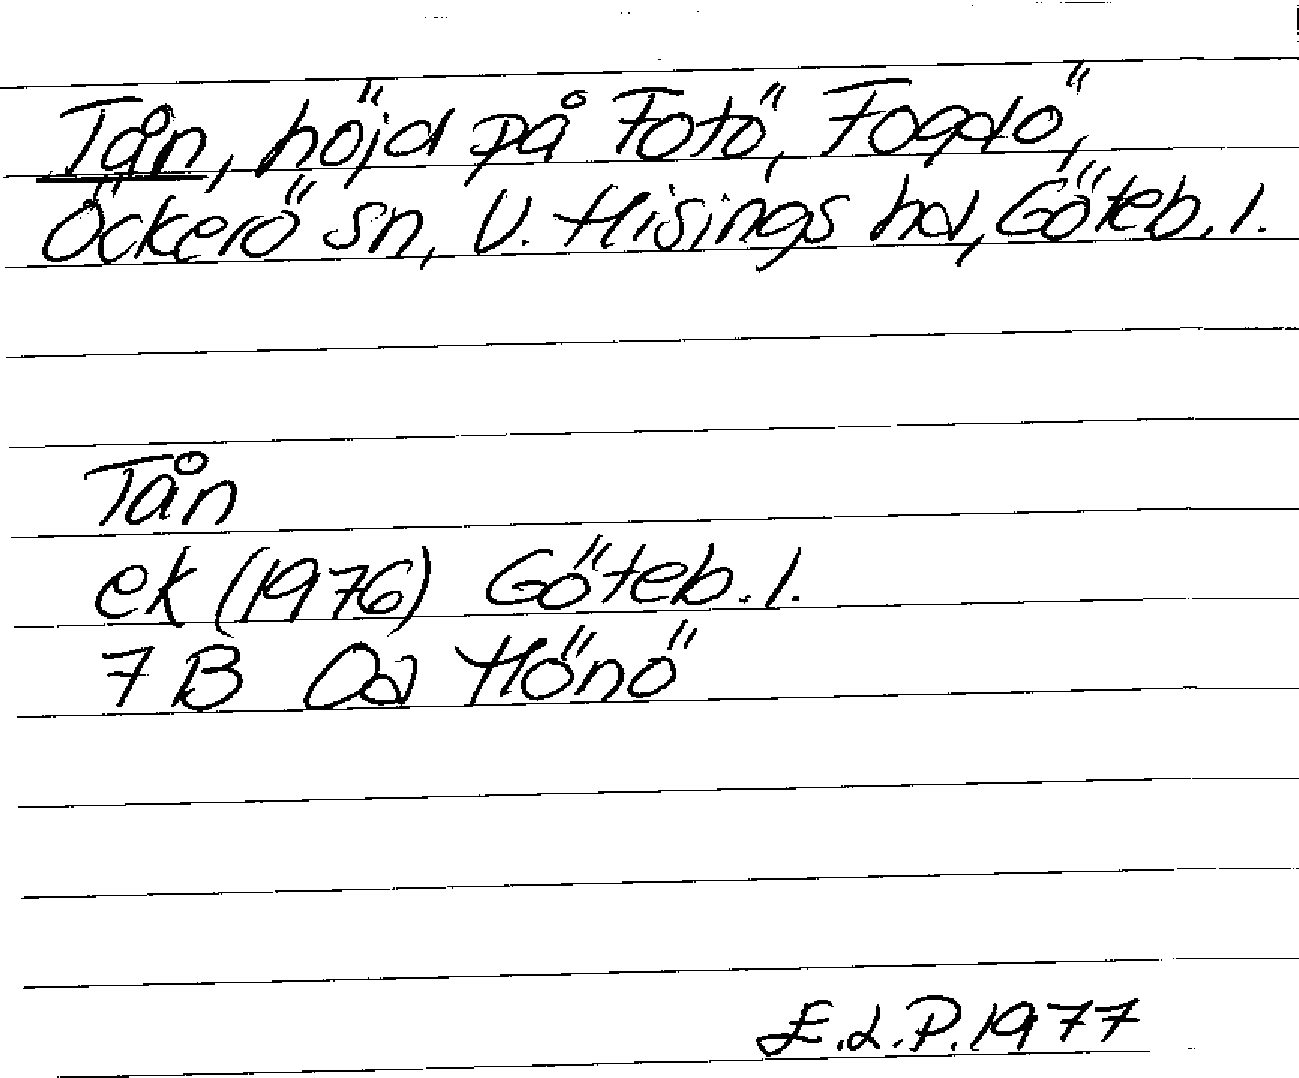 Tån, höjd på Fotö, Fogdö,
Öckerö sn, V. Hisings hd, Göteb. l.
Tån
ek (1976) Göteb. l.
7 B 0a Hönö
E.L.P. 1977